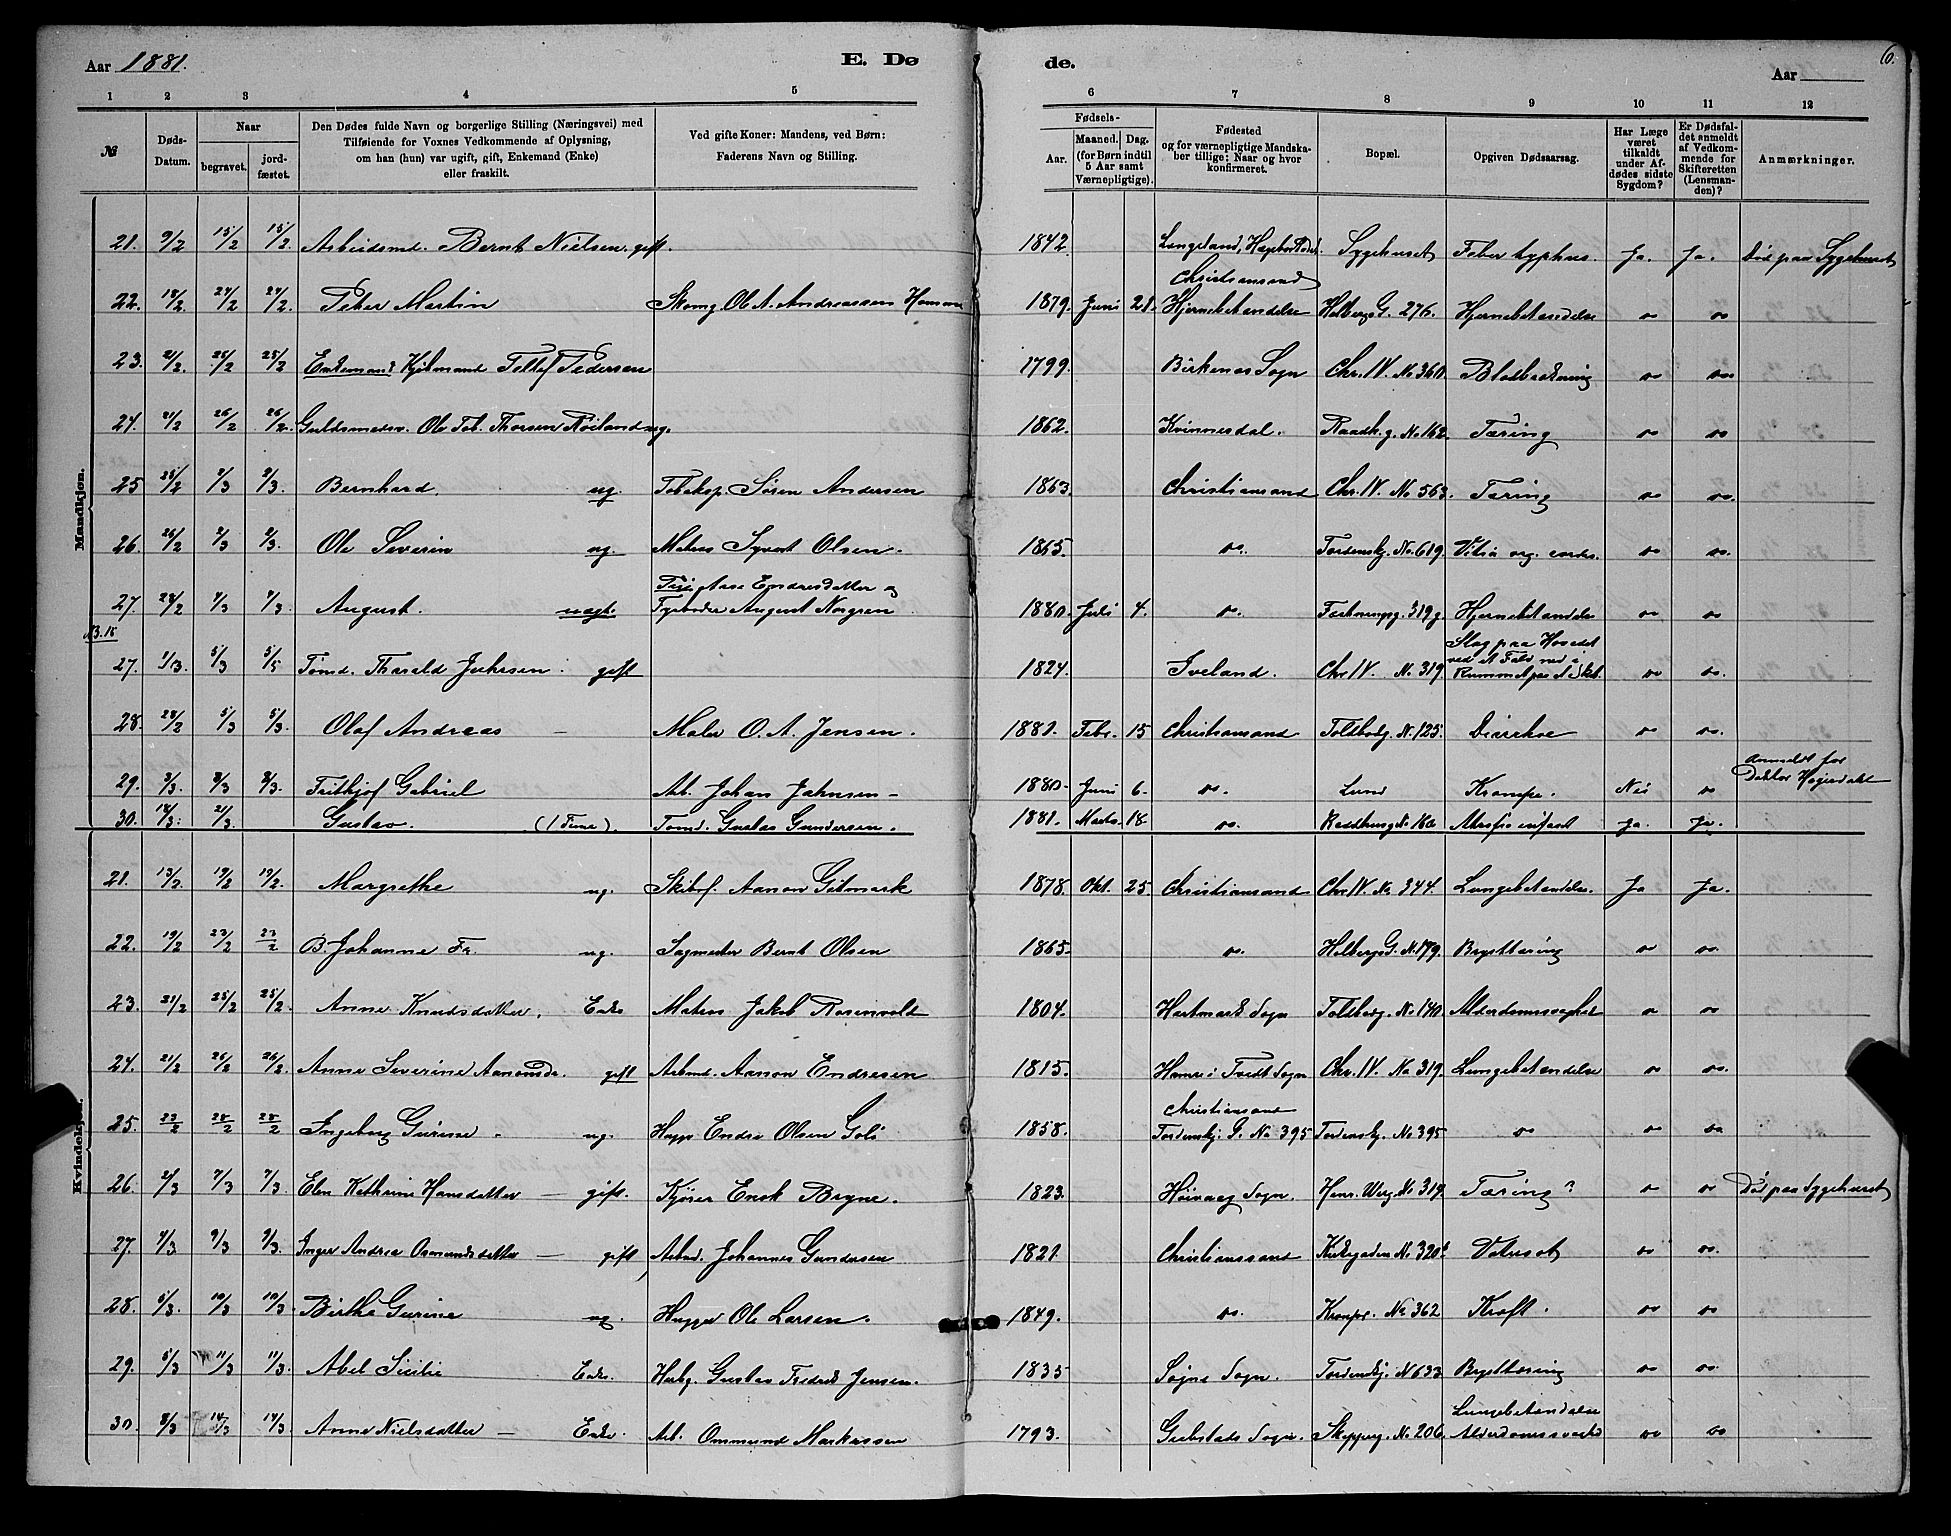 Aar 1881.
E. Dø
de.
Aar
6.
1 2 3 4 5 6 7 8 9 10 11 12
№
Døds-
Datum.
Naar
begravet.
jord-
fæstet.
Den Dødes fulde Navn og borgerlige Stilling (Næringsvei) med
Tilføiende for Voxnes Vedkommende af Oplysning,
om han (hun) var ugift, gift, Enkemand (Enke)
eller fraskilt.
Ved gifte Koner: Mandens, ved Børn:
Faderens Navn og Stilling.
Fødsels-
Aar.
Maaned. Dag.
(for Børn indtil
5 Aar samt
Værnepligtige).
Fødested
og for værnepligtige Mandska-
ber tillige: Naar og hvor
konfirmeret.
Bopæl.
Opgiven Dødsaarsag.
Har Læge
været
tilkaldt
under Af-
dødes sidste
Sygdom?
Er Dødsfal-
det anmeldt
af Vedkom-
mende for
Skifteretten
(Lensman-
den)?
Anmærkninger.
Mandkjøn.
21. 9/2 15/2 15/2. Arbeidsmd. Bernt Nielsen. gift. 1842. Sygehuset Feber typhus. Ja. Ja. Død paa Sygehuset
Christiansand
22. 18/2. 24/2 24/2. Peter Martin Skomg. Ole A. Andreassen 1879. Juni 21. Hjernebetændelse Holbergs G. 276. Hjernebetændelse " "
23. 21/2. 25/2 25/2 Enkemand Kjøbmand Tellef Pedersen 1799. Birkenes Sogn Chr. IV. No 360. Blodbrækning " "
24. 21/2 26/2 26/2. Guldsmedsv. Ole Tob. Thorsen Røiland ug. 1862. Kvinnesdal. Raadh.g. No 162. Tæring " "
25 25/2 2/3 2/3. Bernhard. ug. Søren Andersen 1863. Christiansand Chr. IV. No 563. Tæring " "
26. 26/2 2/3 2/3. Ole Severin ug. Matros Syvert Olsen. 1865. " Tordenskj. No. 619. Vitia org. cordis. " "
Aase Endresdatter og
27. 28/2 7/3 7/3. August. uægte. Fyrbøder August Norgren 1880. Juli 4. " 319 Hjernebetændelse " "
N3.18
Slag paa Hovedet
ved et Fald ned i
27. 1/3. 5/3 5/5 Tømd. Tharald gift 1824. Iveland. Chr. IV. No. 319. Rummet paa et Skib. " "
28. 28/2 5/3 5/3. Olaf Andreas — Maler O. A. Jensen. 1881. Febr. 15 Christiansand Toldbodg. No. 125. Diarrhoe " "
Anmeldt for
29. 3/3. 8/3 8/3. Frithjof Gabriel Arb. Johan Jahnsen — 1880. Juni 6. " Lund Krampe. Nei "
30. 18/3. 21/3. Gustav. (1 Time). Tømd. Gustav Gundersen. 1881. Marts. 18 " Ja. Ja.
Kvindekjøn.
21. 13/2. 19/2 19/2. Margrethe ug. Aanon Gitmark 1878. Okt. 25 Christiansand Chr IV. No. 244. Lungebetændelse. Ja Ja.
22. 19/2 23/2 23/2 B. Johanne Fr. ug. Bernt Olsen 1865. " Holbergs G. N. 179. Brysttæring " "
23. 21/2 25/2 25/2. Anne Knudsdatter. Enke Matros Jakob Rosenvold 1804. Hartmark Sogn Toldbodg. No. 140. Alderdomssvaghed " "
24. 21/2 26/2 26/2. Anne Severine Aanonsdr. gift Arbmd. Aanon Endresen 1815. Hamre i Tvedt Sogn Chr. IV. No 319. Lungebetændelse " "
Christiansand
25. 22/2 28/2 28/2 Ingeborg Gurine. ug. Endre Olsen 1858. Tordenskj. G. No 395 Tordenskj. No 395 " " "
26. 2/3 7/3 7/3. Elen Kathrine Hansdatter — gift. Kjører Enok Bryne. 1823. Høivaag Sogn. Henr. Werg. No 319. Tæring? " " Død paa Sygehuset
27. 4/3. 9/3 9/3. Inger Andrea Osmundsdatter — gift, Arbmd. Johannes Gundersen 1821. Christianssand Kirkegaden No. 320b Vatersot " "
28. 5/3. 10/3 10/3. Birthe Gurine ug. Ole Larsen. 1849. " Krongr. No 362 Kræft. " "
29. 5/3 11/3 11/3. Abel Sicilie Enke. Gustav Fredrik Jensen. 1835 Søgne Sogn. Tordenskj. N 633 Brysttæring " "
Lungebetændelse
30. 8/3 14/3 14/3. Anne Nielsdatter — Enke. Arb. Ommund Markussen 1793. Sogn. Skipperg. No. 206. Alderdomssvaghed " "